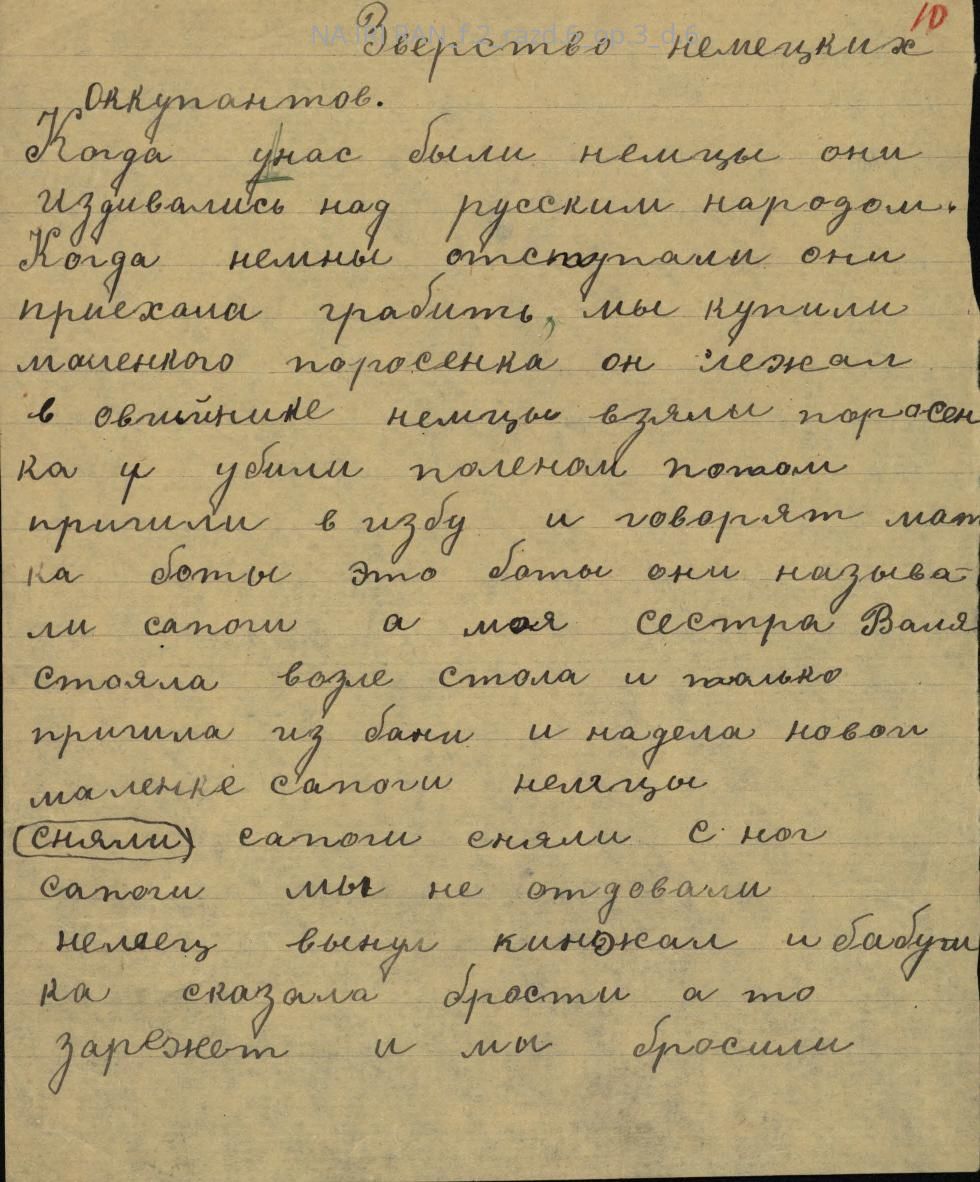 10
Зверство немецких
оккупантов.
Когда унас были немцы они
издивались над русским народом.
Когда немны отступали они
приехала грабить, мы купили
маленкого поросенка он лежал
в овшйнике немцы взялы поросен
ка и убили поленом потом
пришли в избу и говорят мат
ка боты это боты они называ-
ли сапоги а моя сестра Валя
стояла возле стола и только
пришла из бани и надела новои
маленке сапоги немцы
(сняли) сапоги сняли с ног
сапоги мы не отдовали
немец вынул кинжал и бабуш
ка сказала брости а то
зарежет и мы бросили